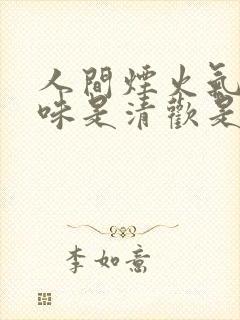 人間煙火氣
味是清歡是
李如意